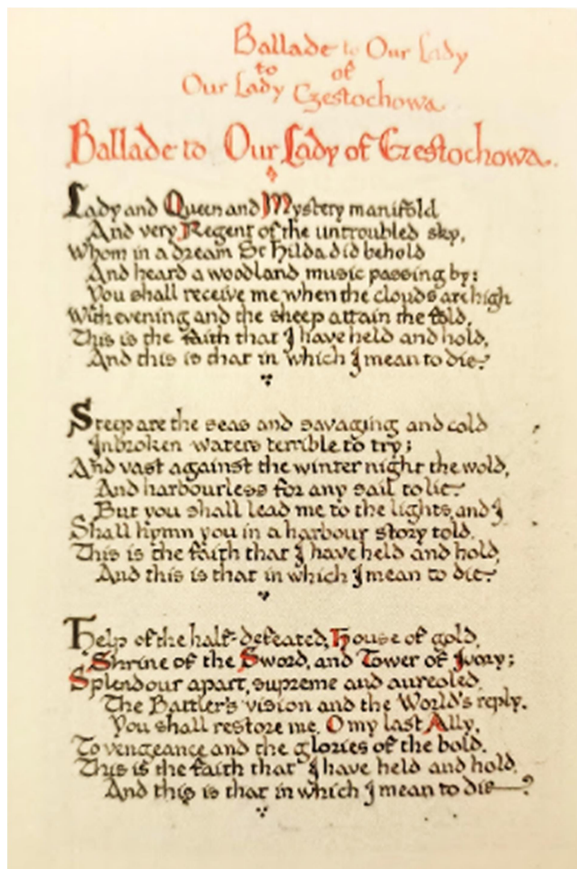 Ballade to Our Lady
to of
Our Lady Czestochowa
Ballade to Our Lady of Czestochowa.
Lady and Queen and Mystery manifold
And very Regent of the untroubled sky,
Whom in a dream St Hilda did behold
And heard a woodland music passing by:
You shall receive me when the clouds are high
With evening and the sheep attain the fold.
This is the faith that I have held and hold,
And this is that in which I mean to die.
Steep are the seas and savaging and cold
In broken waters terrible to try;
And vast against the winter night the wold,
And harbourless for any sail to lie.
But you shall lead me to the lights, and I
Shall hymn you in a harbour story told.
This is the faith that I have held and hold,
And this is that in which I mean to die.
Help of the half-defeated, House of gold,
Shrine of the Sword, and Tower of Ivory;
Splendour apart, supreme and aureoled,
The Battler's vision and the World's reply.
You shall restore me, O my last Ally,
To vengeance and the glories of the bold.
This is the faith that I have held and hold,
And this is that in which I mean to die—?